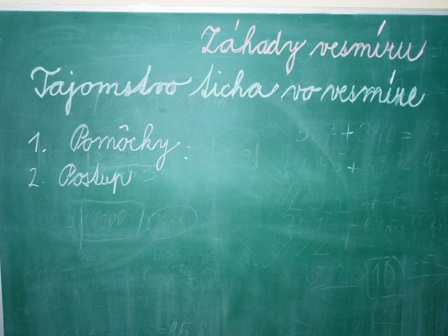 Záhady vesmíru
Tajomstvo ticha vo vesmíre
1. Pomôcky:
2. Postup